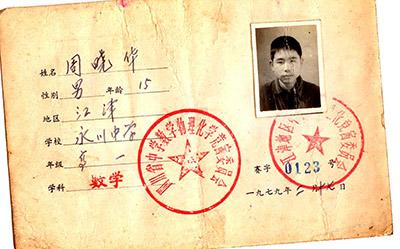 姓名 周晓华
性别 男 年龄 15
地区 江津
学校 永川中学
年级 高一
学科 数学
四川省中学数学物理化学竞赛委员会
赛字 0123 号
一九七九年二月十七日